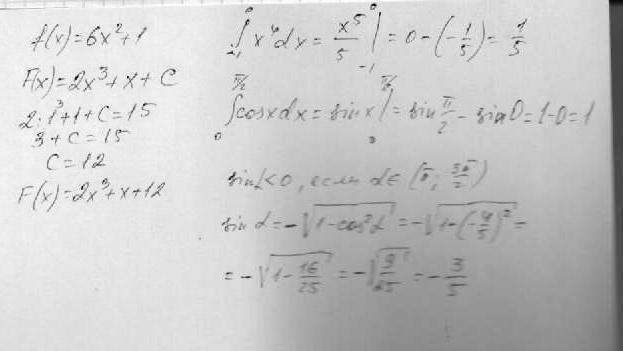 f(x)=6x²+1
F(x)=2x³+x+C
2·1³+1+C=15
3+C=15
C=12
F(x)=2x³+x+12
∫₋₁⁰ x⁴dx = x⁵/5 |₋₁⁰ = 0-(-1/5)= 1/5
∫₀^(π/2) cosxdx = sinx |₀^(π/2) = sin π/2 - sin0=1-0=1
sinα<0, если α∈(π; 3π/2)
sinα=-√(1-cos²α)=-√(1-(-4/5)²)=
=-√(1-16/25)=-√(9/25)=-3/5